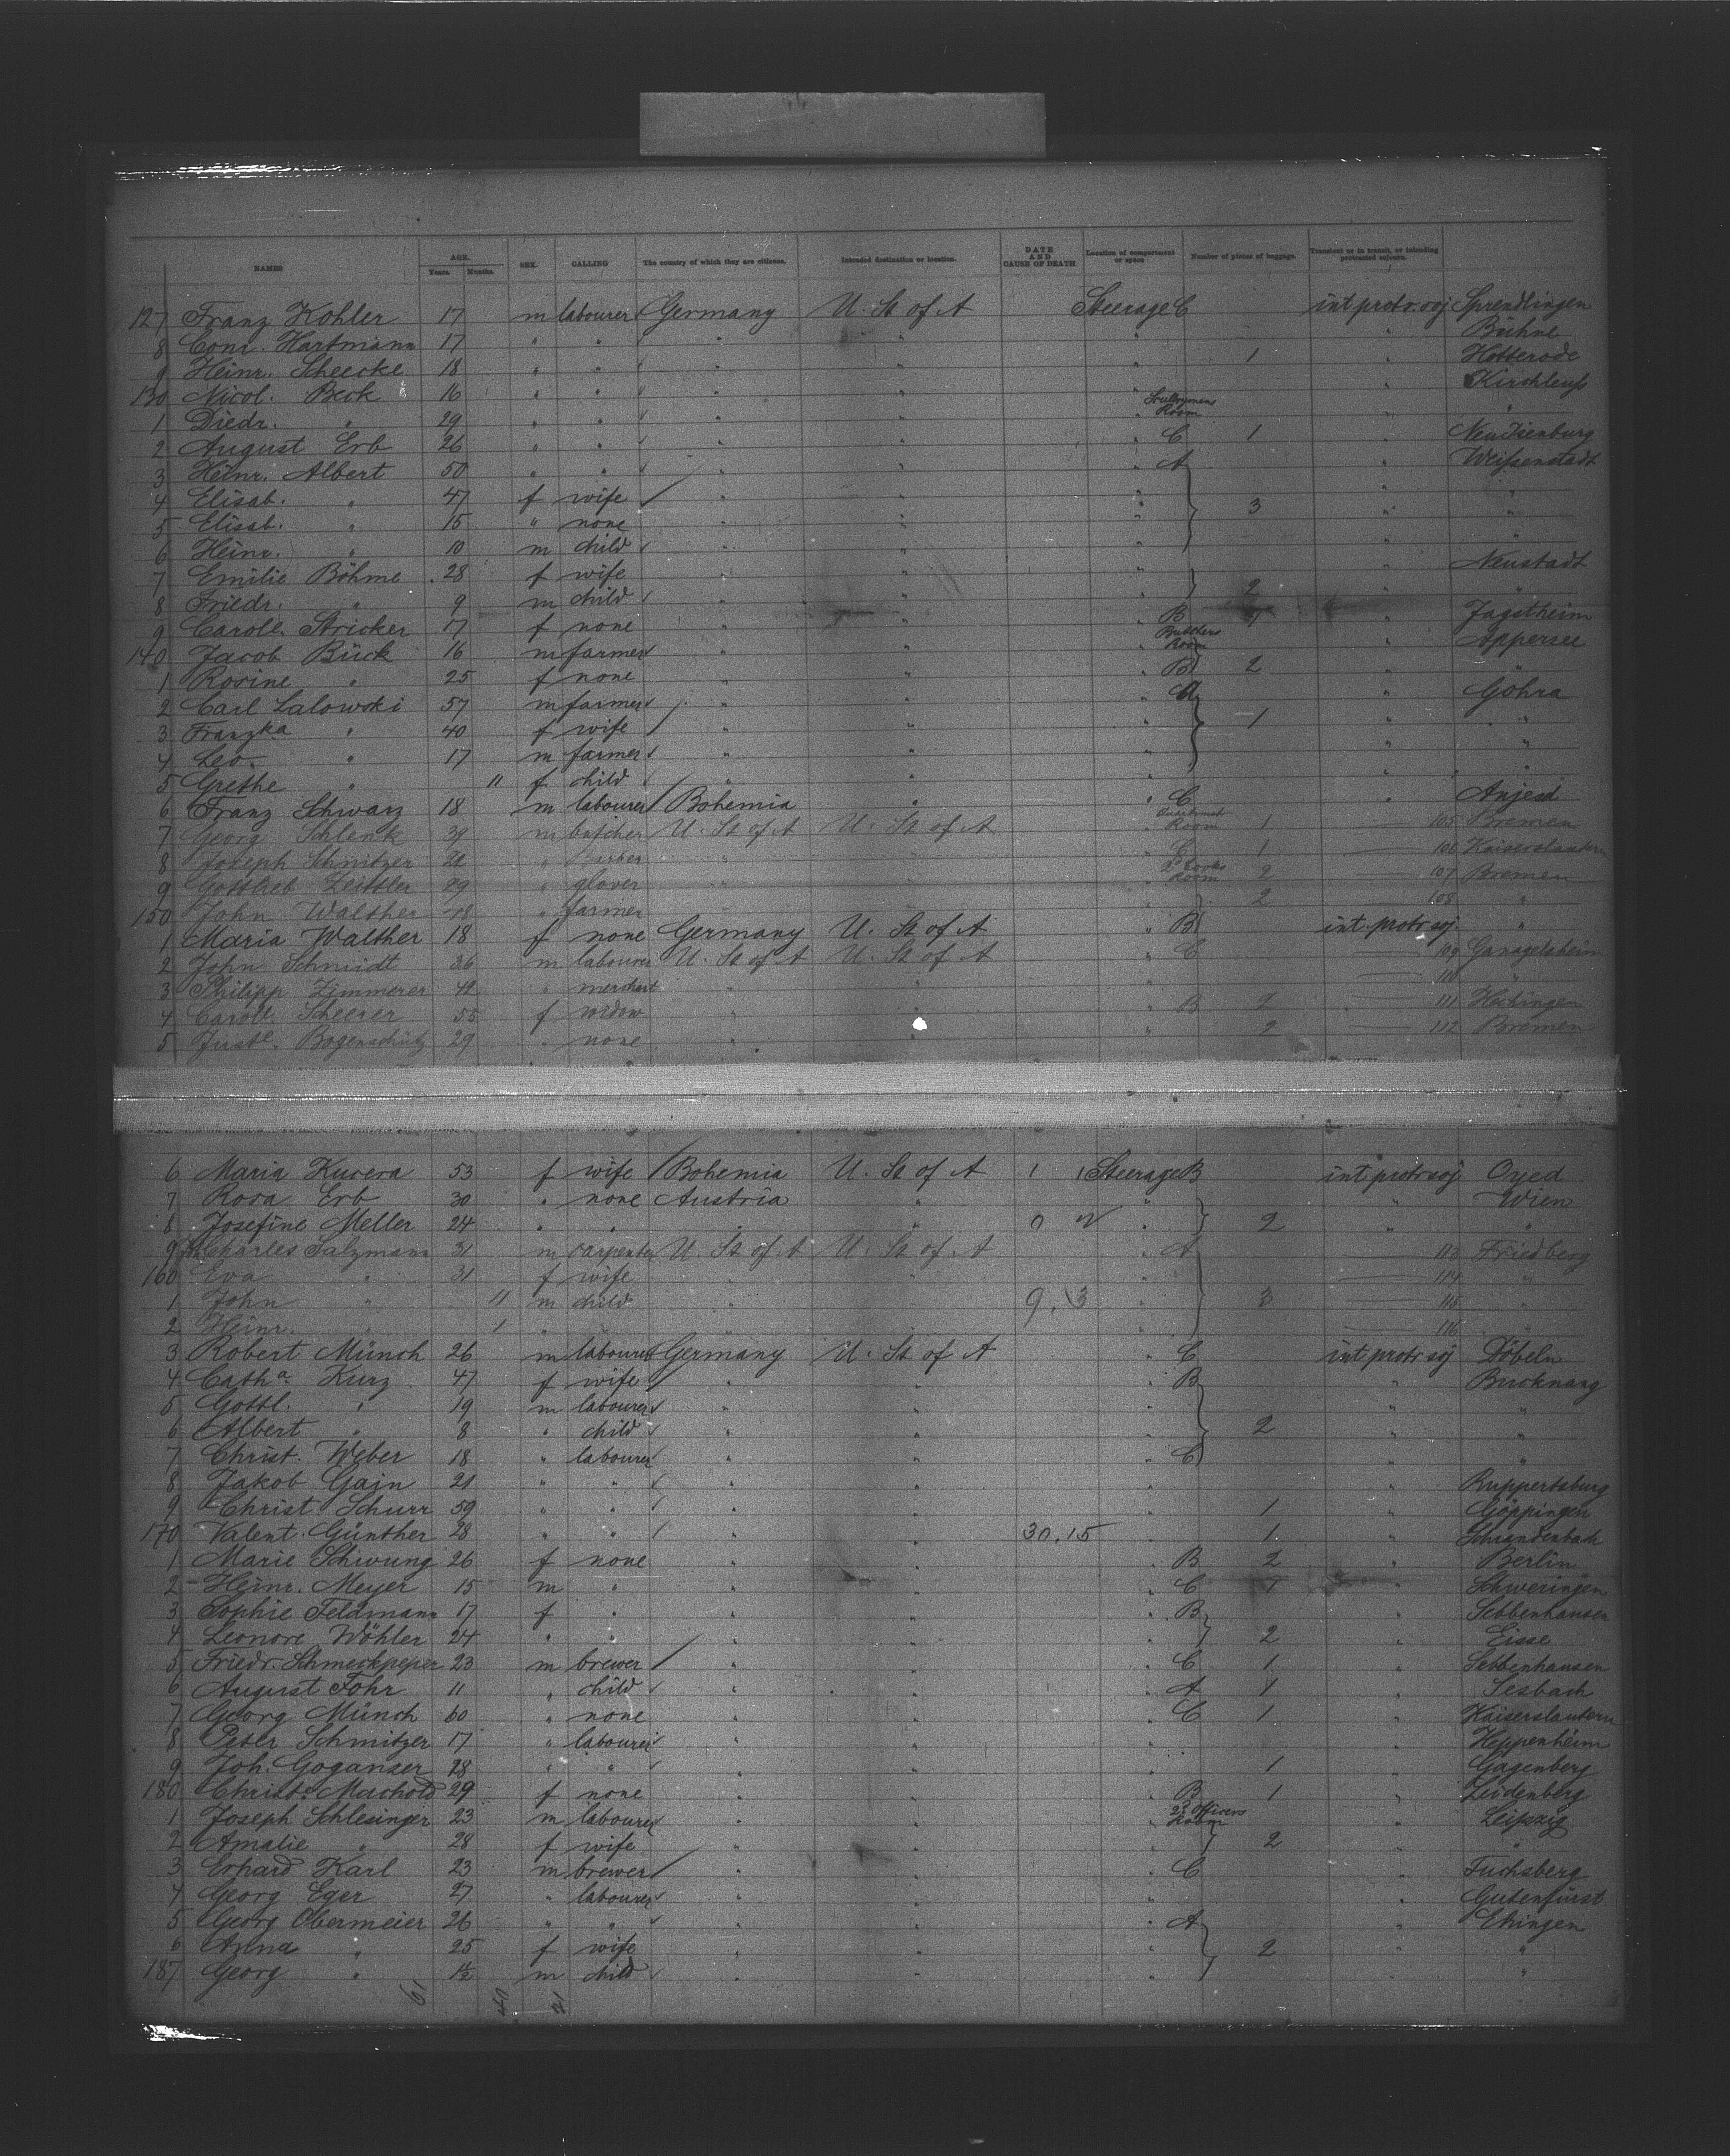 NAMES AGE. Years. Months. SEX. CALLING The country of which they are citizens. Intended destination or location. DATE AND CAUSE OF DEATH. Location of compartment or space Number of pieces of baggage. Transient or in transit, or intending protracted sojourn.
127 Franz Kohler 17 m labourer Germany U. St of A Steerage C int protr. soj Sprendlingen
8 Conr. Hartmann 17 " " " " " " Bühne
9 Heinr. Scheecke 18 " " " " " 1 " Hotterode
130 Nicol. Beck 16 " " " " " "
1 Diedr. " 29 " " " " " Room " "
2 August Erb 26 " " " " " C 1 " Neu Isenburg
3 Heinr. Albert 50 " " " " " A " Weissenstadt
4 Elisab. " 47 f wife " " " " "
5 Elisab. " 15 " none " " " 3 " "
6 Heinr. " 10 m child " " " " "
7 Emilie Böhme 28 f wife " " " " Neustadt
8 Friedr. " 9 m child " " " 2 " "
9 Caroll. Stricker 17 f none " " " B 1 " Jagstheim
140 Jacob Bück 16 m farmer " " " Butchers Room " Appersee
1 Rosine " 25 f none " " " B 2 " "
2 Carl Lalowski 57 m farmer " " " A " Göhra
3 Franzka " 40 f wife " " " 1 " "
4 Leo. " 17 m farmer " " " " "
5 Grethe " 11 f child " " " " "
6 Franz Schwarz 18 m labourer Bohemia " " C " Anjesd
7 Georg Schlenk 39 m butcher U. St of A U. St of A " Room 1 105 Bremen
8 Joseph Schnitzer 28 " " " " C 1 106 Kaiserslautern
9 Gottlieb Zeittler 29 " glover " " " 2d Cooks Room 2 107 Bremen
150 John Walther 48 " farmer " " " 2 108 "
1 Maria Walther 18 f none Germany U. St of A " B int. protr soj. "
2 John Schmidt 36 m labourer U. St of A U. St of A " C 109
3 Philipp Zimmerer 42 " merchant " " " 110 "
4 Caroll. Scheerer 55 f widow " " " B 2 111 Hechingen
5 Just e. Bogenschütz 29 " none " " " 2 112 Bremen
6 Maria Kucera 53 f wife Bohemia U. St of A 1 1 Steerage B int protr soj Oyed
7 Rosa Erb 30 " none Austria " " " Wien
8 Josefine Meller 24 " " " " 0 " 2 " "
9 Charles Salzmann 31 m carpenter U. St of A U. St of A " A 113 Friedberg
160 Eva " 31 f wife " " " 114 "
1 John " 11 m child " " 9. 3 " 3 115 "
2 Heinr. " 1 " " " " " 116 "
3 Robert Münch 26 m labourer Germany U. St of A " C int protr soj Döbeln
4 Catha. Kurz 47 f wife " " " B " Bucknang
5 Gottl. " 19 m labourer " " " " "
6 Albert " 8 " child " " " 2 " "
7 Christ. Weber 18 " labourer " " " C " "
8 Jakob Gain 21 " " " " " " Ruppertsburg
9 Christ Schurr 59 " " " " " 1 " Göppingen
170 Valent. Günther 28 " " " " 30.15 " 1 "
1 Marie Schwung 26 f none " " " B 2 " Berlin
2 Heinr. Meyer 15 m " " " " C 1 " Schweringen
3 Sophie Feldmann 17 f " " " " B " Sebbenhausen
4 Leonore Wöhler 24 " " " " " 2 " Eisse
5 Friedr. Schmeckpeper 23 m brewer " " " C 1 " Sebbenhausen
6 August Fohr 11 " child " " " A 1 " Sesbach
7 Georg Münch 60 " none " " " C 1 " Kaiserslautern
8 Peter Schmitzer 17 " labourer " " " " Heppenheim
9 Joh. Goganser 28 " " " " " 1 " Gagenberg
180 Christe. Machold 29 f none " " " B 1 " Leidenberg
1 Joseph Schlesinger 23 m labourer " " " 2d Officers Room " Leipzig
2 Amalie " 28 f wife " " " 2 " "
3 Erhard Karl 23 m brewer " " " C " Fuchsberg
4 Georg Eger 27 " labourer " " " " Gutenfürst
5 Georg Obermeier 26 " " " " " A " Ehingen
6 Anna " 25 f wife " " " 2 " "
187 Georg " 1½ m child " " " "
61 40 21